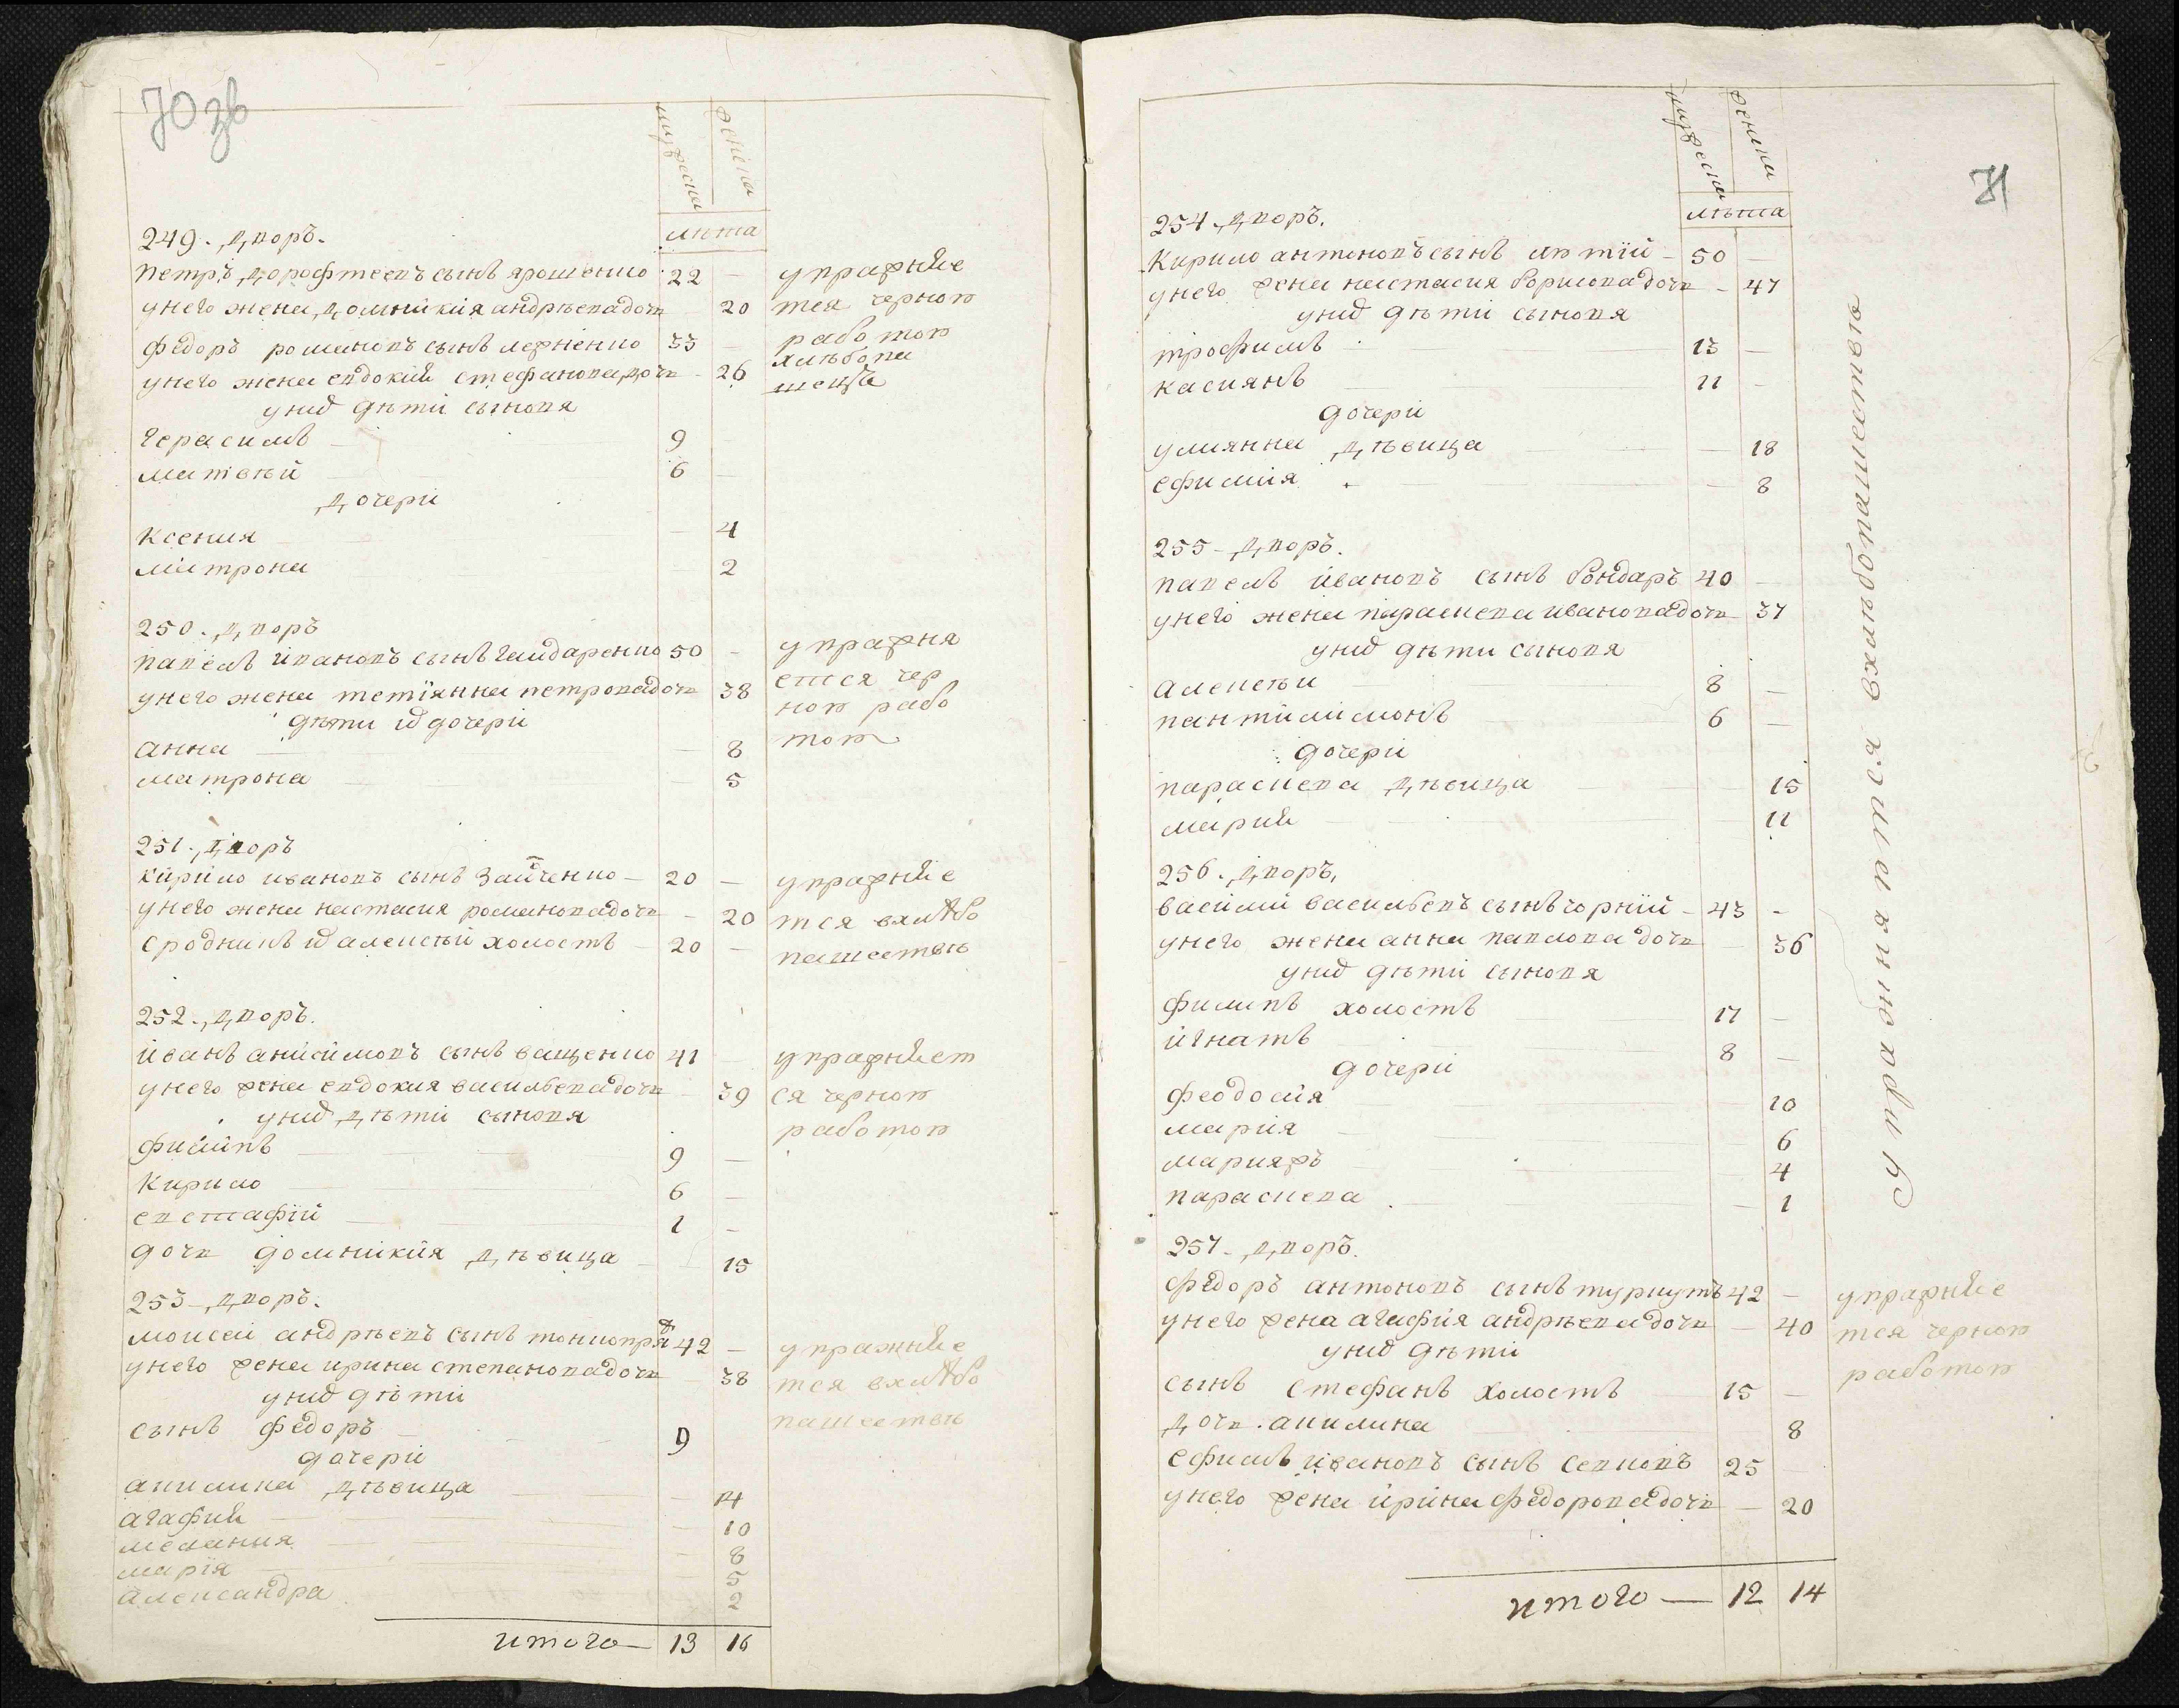 70 зв
мужеска
женска
лѣта
249. дворъ.
петръ дорофѣевъ сынъ ярошенко 22 —
унего жена домникия андрѣева дочь 20
федоръ романовъ сынъ 33 —
унего жена евдокия стефанова дочь 26
унихъ дѣти сыновя
герасимъ 9
матвѣй 6 —
дочери
ксения — 4
митрона — 2
упражняе
тся чернов
работов
хлѣбопа
шецъ
250. дворъ
павелъ ивановъ сынъ гайдаренко 50 —
унего жена тетиянна петрова дочь 38
дѣти ихъ дочери
анна — 8
матрона — 5
упражня
ется чер
нов рабо
тов
251. дворъ
кирило ивановъ сынъ зайченко — 20 —
унего жена настасия романова дочь — 20
сродникъ ихъ алексѣй холостъ — 20 —
упражняе
тся вхлѣбо
пашествѣ
252. дворъ.
иванъ анисимовъ сынъ ващенко 41
унего жена евдокия василева дочь 39
унихъ дѣти сыновя
филипъ 9 —
Кирило 6 —
евстафiй 1 —
дочь домникия дѣвица 15
упражняет
ся чернов
работов
253. дворъ.
моисей андрѣевъ сынъ тонкопряд 42 —
унего жена ирина степанова дочь 38
унихъ дѣти
сынъ федоръ 9
дочери
акилина дѣвица — 14
агафия — 10
мелания — 8
марiя — 5
александра 2
упражняе
тся вхлѣбо
пашествѣ
итого — 13 16
71
мужеска
женска
лѣта
254. дворъ.
Кирило антоновъ сынъ — 50 —
унего жена настасия борисова дочь — 47
унихъ дѣти сыновя
трофимъ 13 —
касиянъ 11 —
дочери
улиянна дѣвица — 18
ефимия — 8
255. дворъ.
павелъ ивановъ сынъ бондаръ 40 —
унего жена параскева иванова дочь 37
унихъ дѣти сыновя
алексѣи 8 —
пантилимонъ 6 —
дочери
параскева дѣвица 15
мария 11
256. дворъ.
василий василевъ сынъ чорний — 43 —
унего жена анна павлова дочь — 36
унихъ дѣти сыновя
филипъ холостъ 17 —
игнатъ 8 —
дочери
феодосия 10
мария — 6
марияжъ 4
параскева — 1
упражняется вхлѣбопашествѣ
257. дворъ.
федоръ антоновъ сынъ туркутъ 42 —
унего жена агафия андрѣева дочь — 40
унихъ дѣти
сынъ стефанъ холостъ 15 —
дочь акилина 8
ефимъ ивановъ сынъ севковъ 25
унего жена ирина федорова дочь — 20
упражняе
тся чернов
работов
итого — 12 14